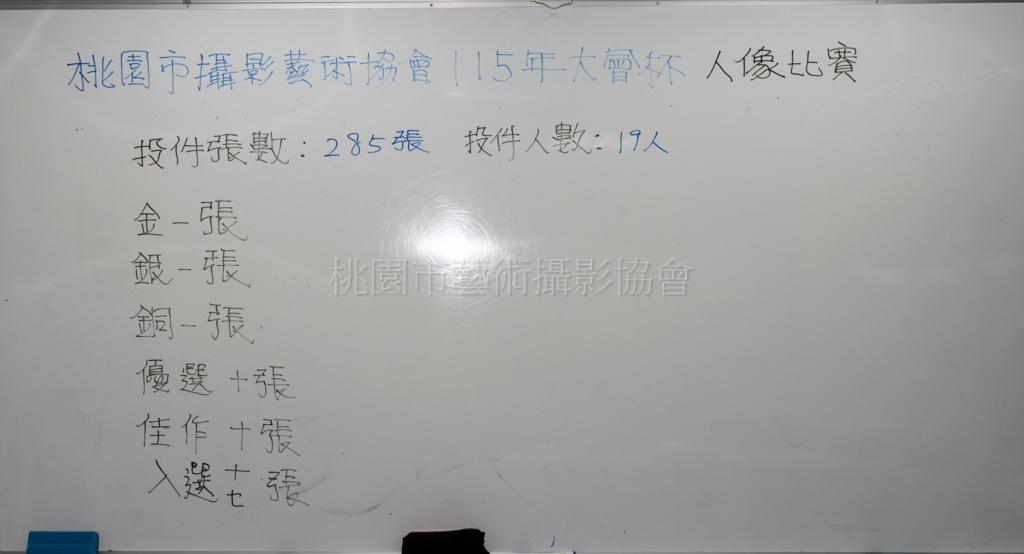 桃園市攝影藝術協會 115年大會杯 人像比賽
投件張數：285張 投件人數：19人
金一張
銀一張
桃園市藝術攝影協會
銅一張
優選十張
佳作十張
入選十七張